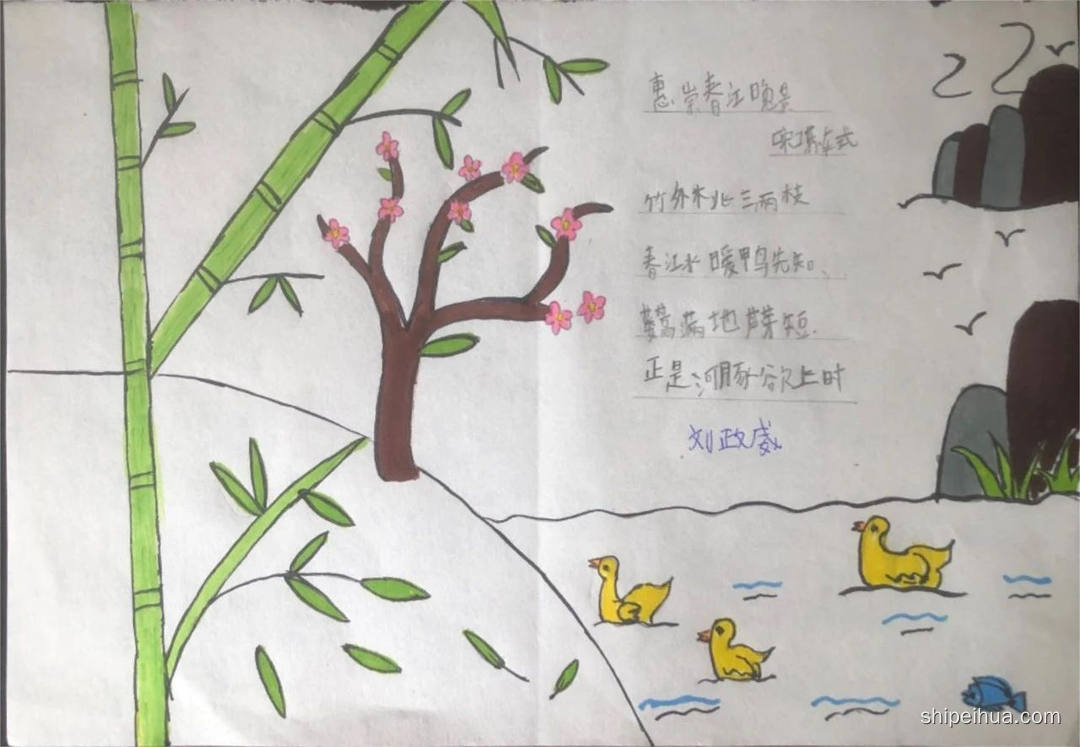 惠崇春江晚景
宋
竹外三两枝
春江水暖鸭先知、
蒌蒿满地芦芽短.
正是河豚欲上时
刘政威
shipeihua.com